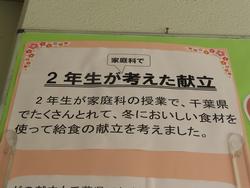 家庭科で
2年生が考えた献立
2年生が家庭科の授業で、千葉県
でたくさんとれて、冬においしい食材を
使って給食の献立を考えました。